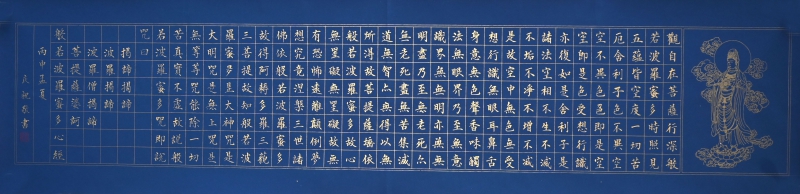 觀自在菩薩行深般
若波羅蜜多時照見
五蘊皆空度一切苦
厄舍利子色不異空
空不異色色即是空
空即是色受想行識
亦復如是舍利子是
諸法空相不生不滅
不垢不淨不增不減
是故空中無色無受
想行識無眼耳鼻舌
身意無色聲香味觸
法無眼界乃至無意
識界無無明亦無無
明盡乃至無老死亦
無老死盡無苦集滅
道無智亦無得以無
所得故菩提薩埵依
般若波羅蜜多故心
無罣礙無罣礙故無
有恐怖遠離顛倒夢
想究竟涅槃三世諸
佛依般若波羅蜜多
故得阿耨多羅三藐
三菩提故知般若波
羅蜜多是大神咒是
大明咒是無上咒是
無等等咒能除一切
苦真實不虛故說般
若波羅蜜多咒即說
咒曰
揭諦揭諦
波羅揭諦
波羅僧揭諦
菩提薩婆訶
般若波羅蜜多心經
丙申孟夏
敬書